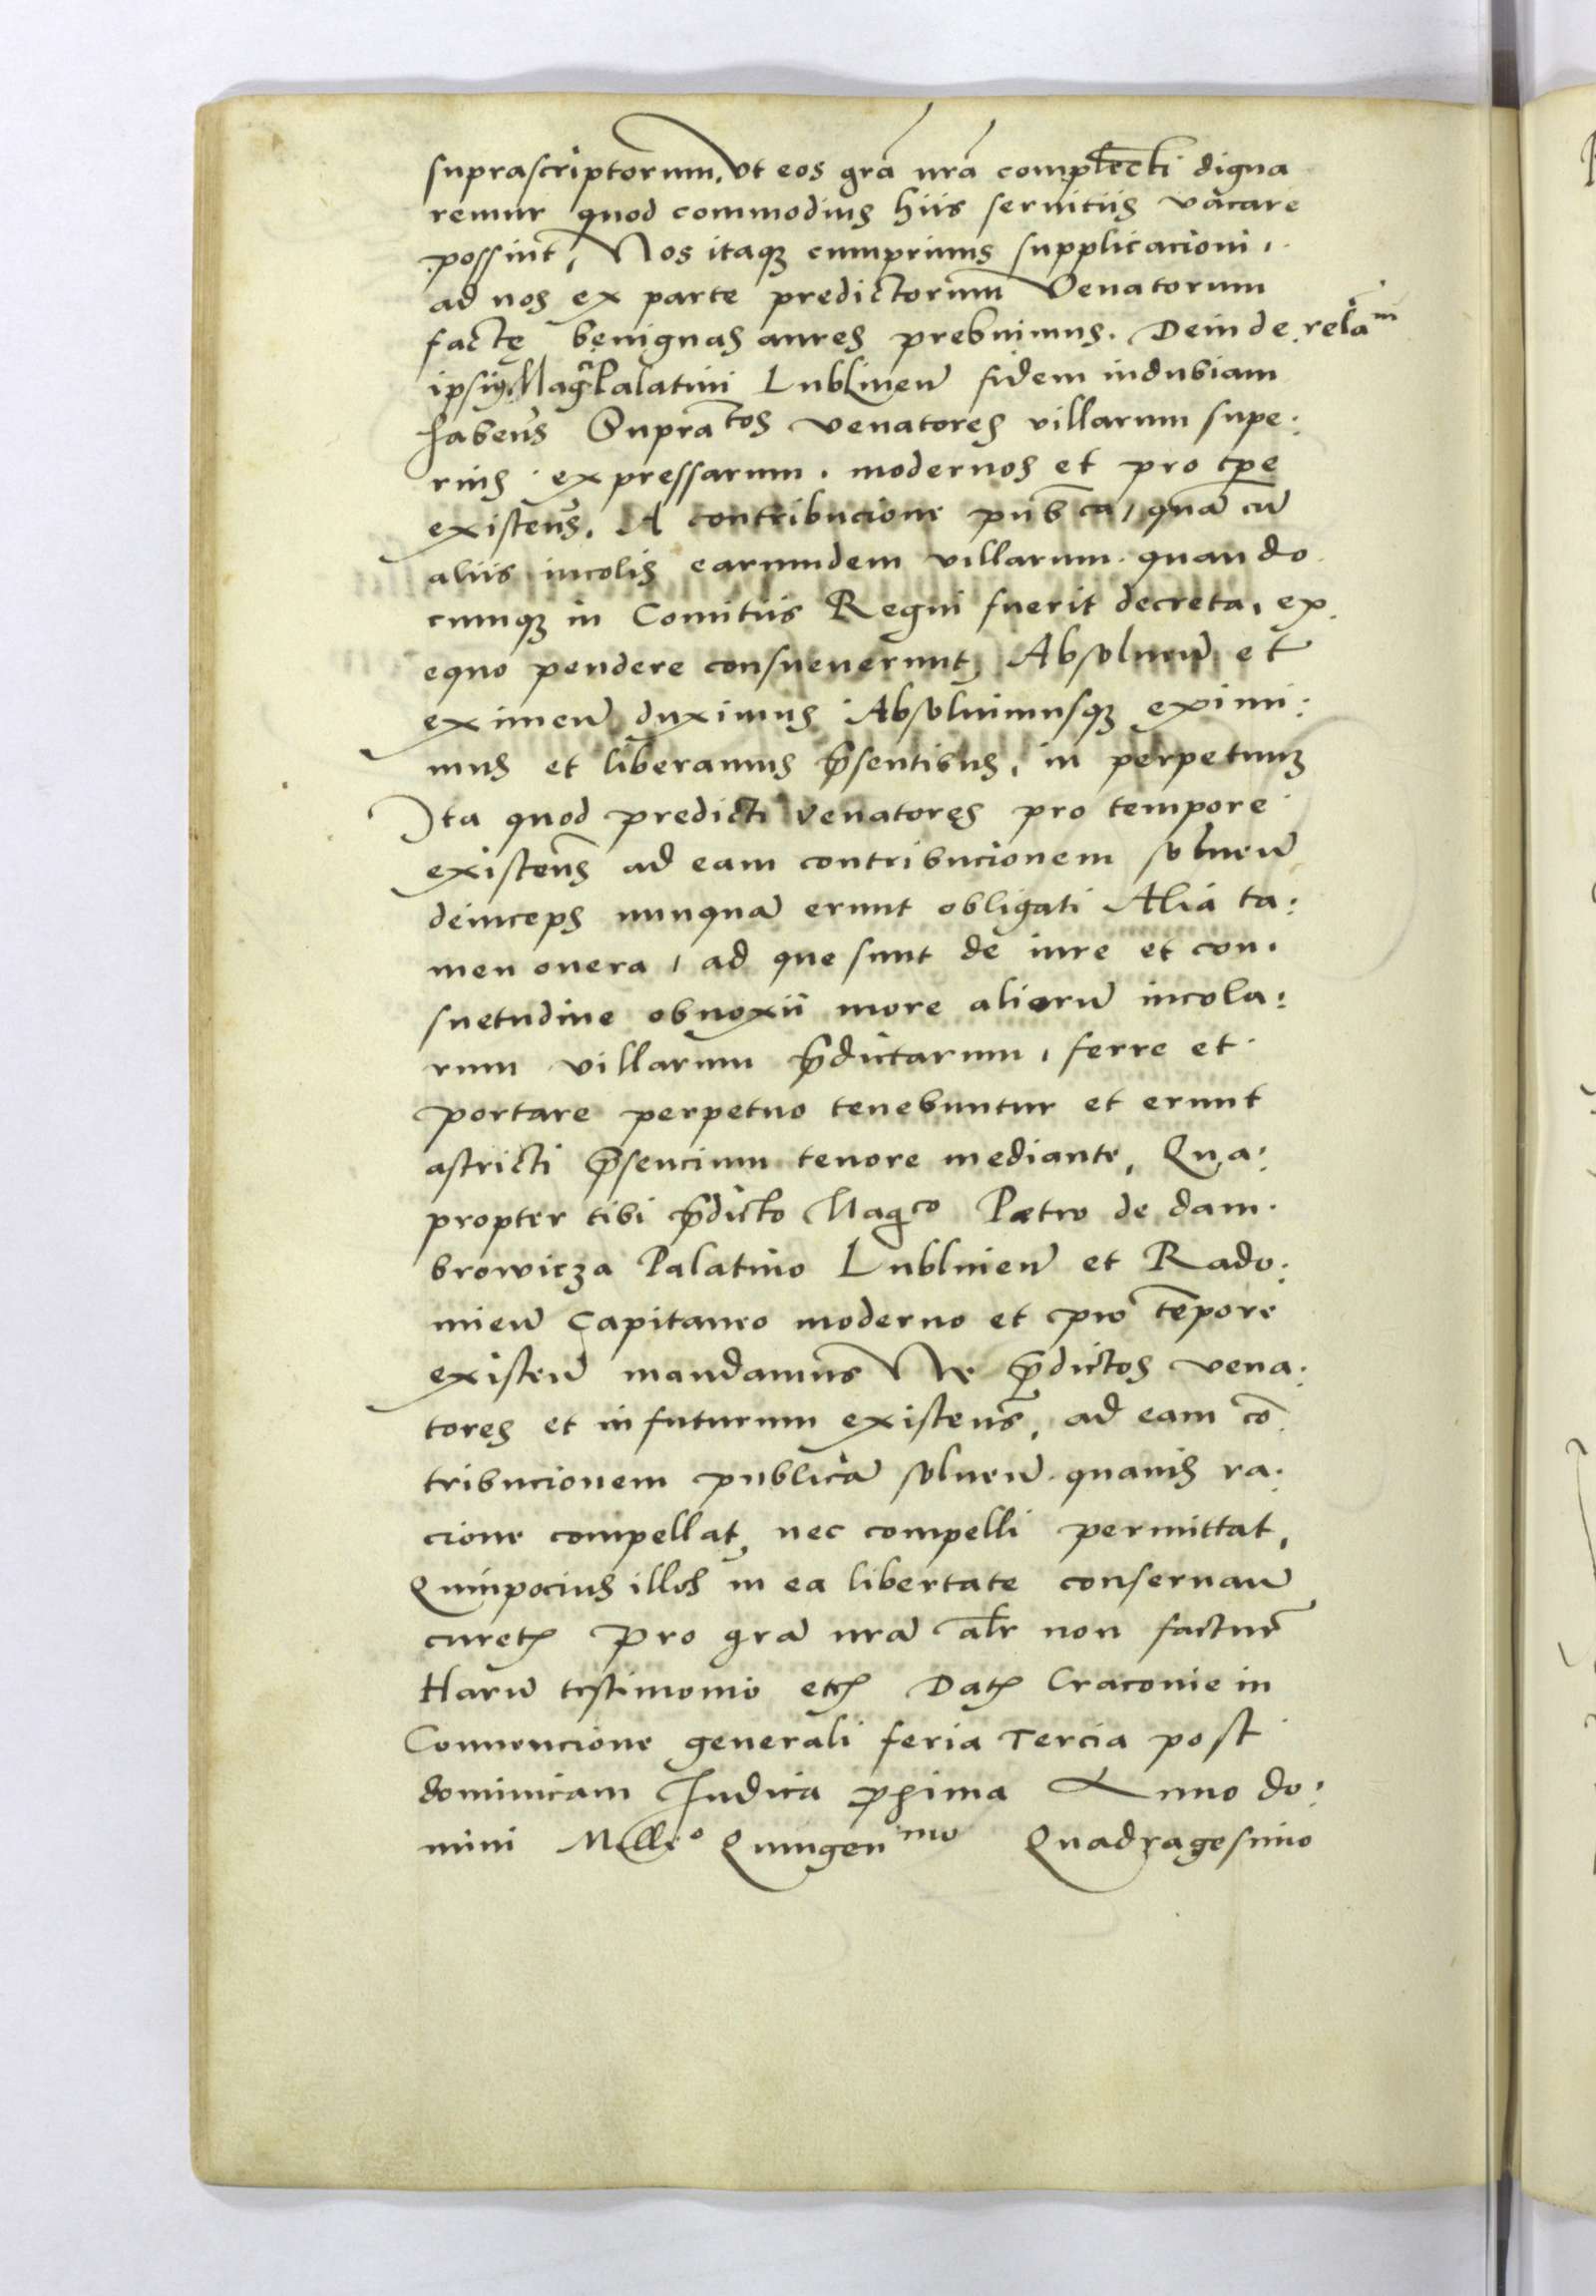 suprascriptorum, Vt eos grã nrã complecti digna
remur quod commodius hiis seruitiis vacare
possint, Nos itaqȝ cumprimis supplicacioni,
ad nos ex parte predictorum Venatorum
factę benignas aures prebuimus. Deinde relaᵐ
ipsius Magci Palatini Lublinen̄ fidem indubiam
habens̄ Supratos venatores villarum supe:
rius expressarum, modernos et pro tp̄e
existens̄, A contribucione pub̄ca, quã cū
aliis incolis earumdem villarum quando
cumqȝ in Comitiis Regni fuerit decreta, ex
equo pendere consueuerunt, Absoluen̄ et
eximen̄ duximus Absoluimusqȝ eximi:
mus et liberamus p̄sentibus, in perpetuuȝ
Ita quod predicti venatores pro tempore
existens̄ ad eam contribucionem soluen̄
deinceps nunquã erunt obligati Alia ta:
men onera, ad que sunt de iure et con:
suetudine obnoxii more aliorū incola:
rum villarum p̄dictarum, ferre et
portare perpetuo tenebuntur et erunt
astricti p̄sencium tenore mediante, Qua:
propter tibi p̄dicto Magᶜᵒ Petro de dam:
browicza Palatino Lublinen̄ et Rado:
mien̄ Capitaneo moderno et pro tempore
existen̄ mandamus Ne p̄dictos vena:
tores et in futurum existens̄, ad eam cō
tribucionem publicã soluen̄ quauis ra:
cione compellat, nec compelli permittat,
Quinpocius illos in ea libertate conseruan̄
curet, Pro grã nrã alr̄ non factur̄
Harū testimonio etc Dat Craconie in
Conuencione generali feria Tercia post
dominicam Iudica p̄xima Anno do:
mini Mill̄ᵒ Quingenᵐᵒ Quadragesimo